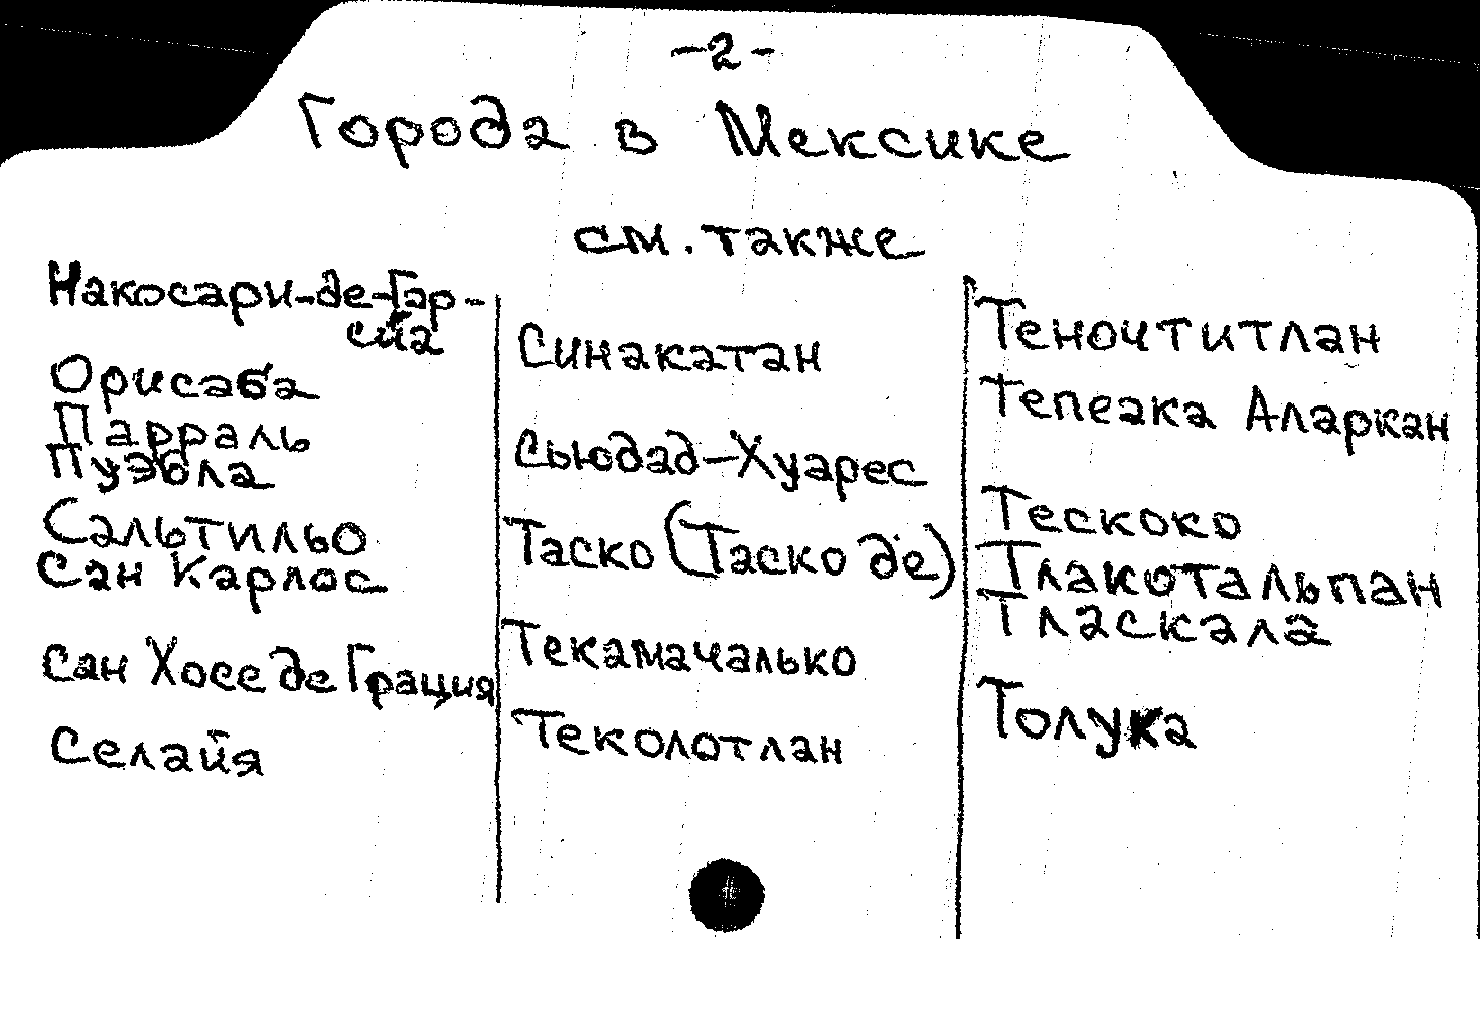 -2-
Города в Мексике
см. также
Накосари-де-Гар-
сиа
Орисаба
Парраль
Пуэбла
Сальтильо
Сан Карлос
Сан Хосе де Грация
Селайя
Синакатан
Сьюдад-Хуарес
Таско (Таско де)
Текамачалько
Теколотлан
Теночтитлан
Тепеака Аларкан
Тескоко
Тлакотальпан
Тласкала
Толука